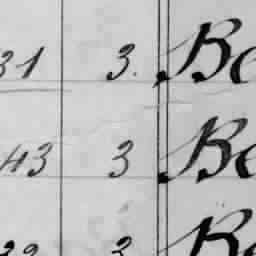 31 3. Be
43 3 Be
3 Be